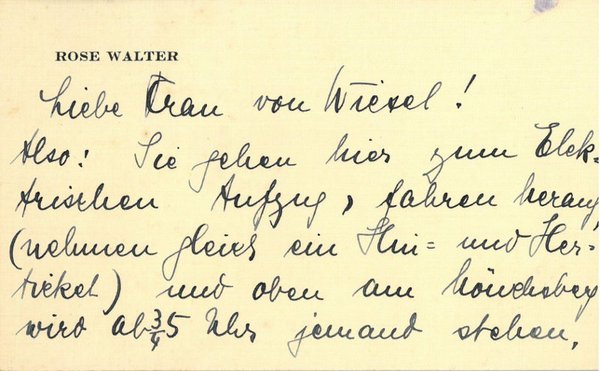 ROSE WALTER
Liebe Frau von Wiesel!
Also: Sie gehen hier zum Elek=
trischen Aufzug, fahren herauf,
(nehmen gleich ein Hin= und Her=
ticket) und oben am Mönchsberg
wird ab 3/4 5 Uhr jemand stehen.